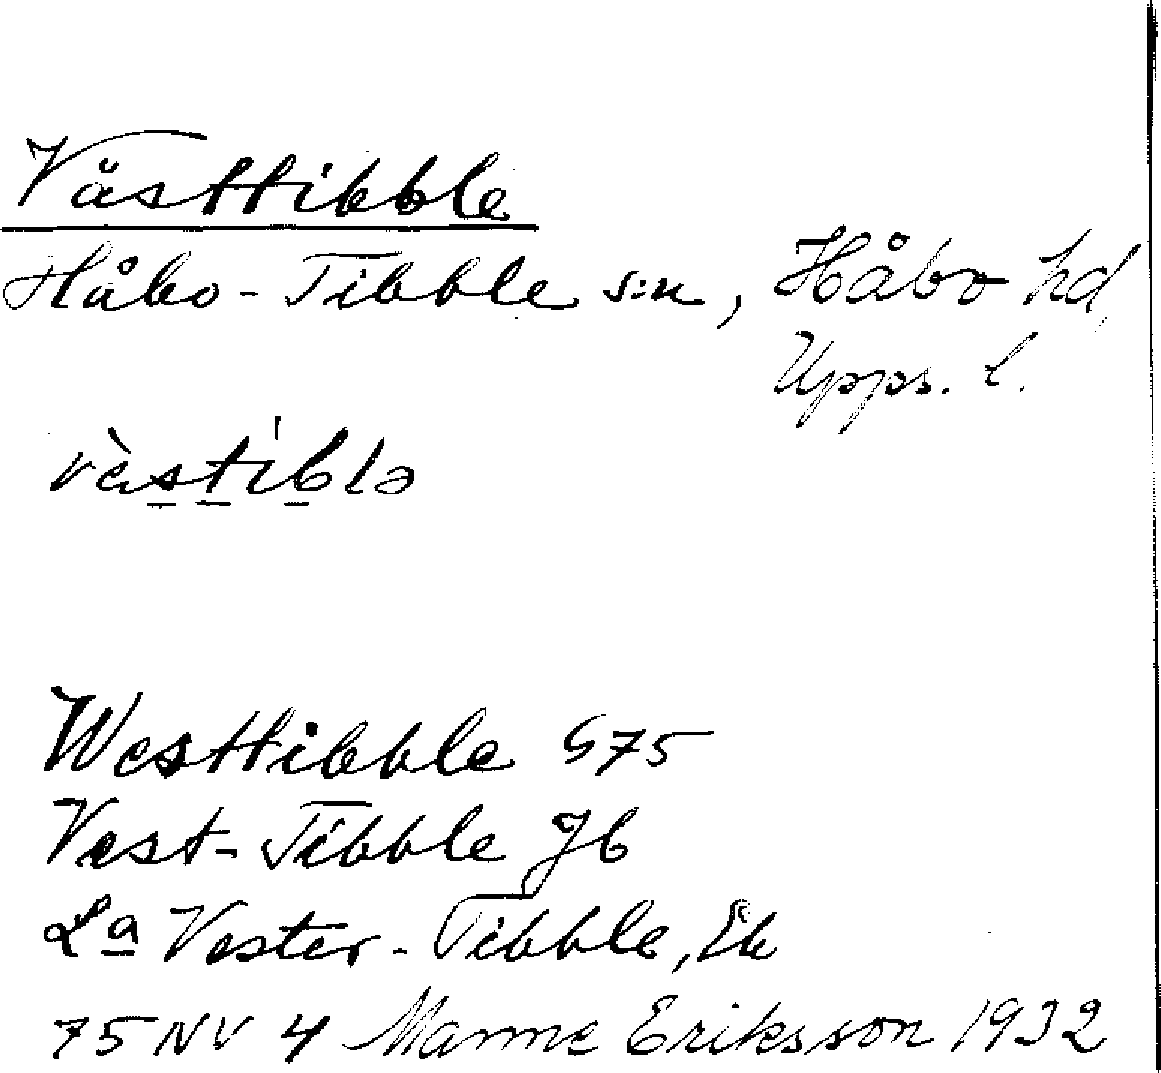 Västtibble
Håbo-Tibble s:n, Håbo hd,
Upps. l.
vèstiblə
Westtibble G75
Vest-Tibble Jb
La Vester-Tibble, Ek
75 NV 4 Manne Eriksson 1932